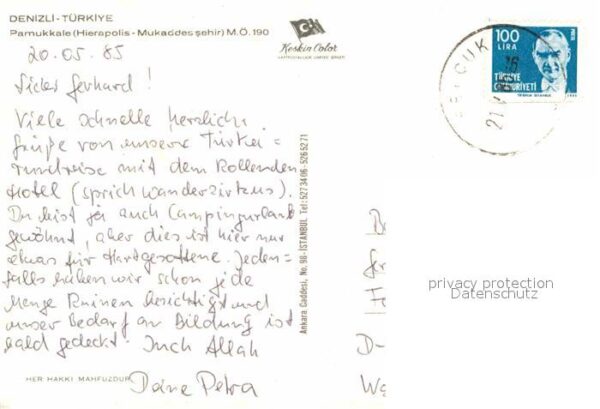 DENIZLI - TÜRKİYE
Pamukkale (Hierapolis - Mukaddes şehir) M.Ö. 190
20.05.85
Lieber Gerhard!
Viele schnelle herzliche
Grüße von unserer Türkei=
rundreise mit dem Rollenden
Hotel (sprich Wanderzirkus).
Du bist ja auch Campingurlaub
gewöhnt, aber dies ist hier nur
etwas für Hartgesottene. Jeden=
falls haben wir schon jede
Menge Ruinen besichtigt und
unser Bedarf an Bildung ist
bald gedeckt. Inch Allah
Deine Petra
HER HAKKI MAHFUZDUR
Keskin Color
Ankara Caddesi, No. 98 - İSTANBUL Tel: 5273406 - 5265271
SELÇUK
21
16
100
LIRA
TÜRKİYE
CUMHURİYETİ
privacy protection
Datenschutz